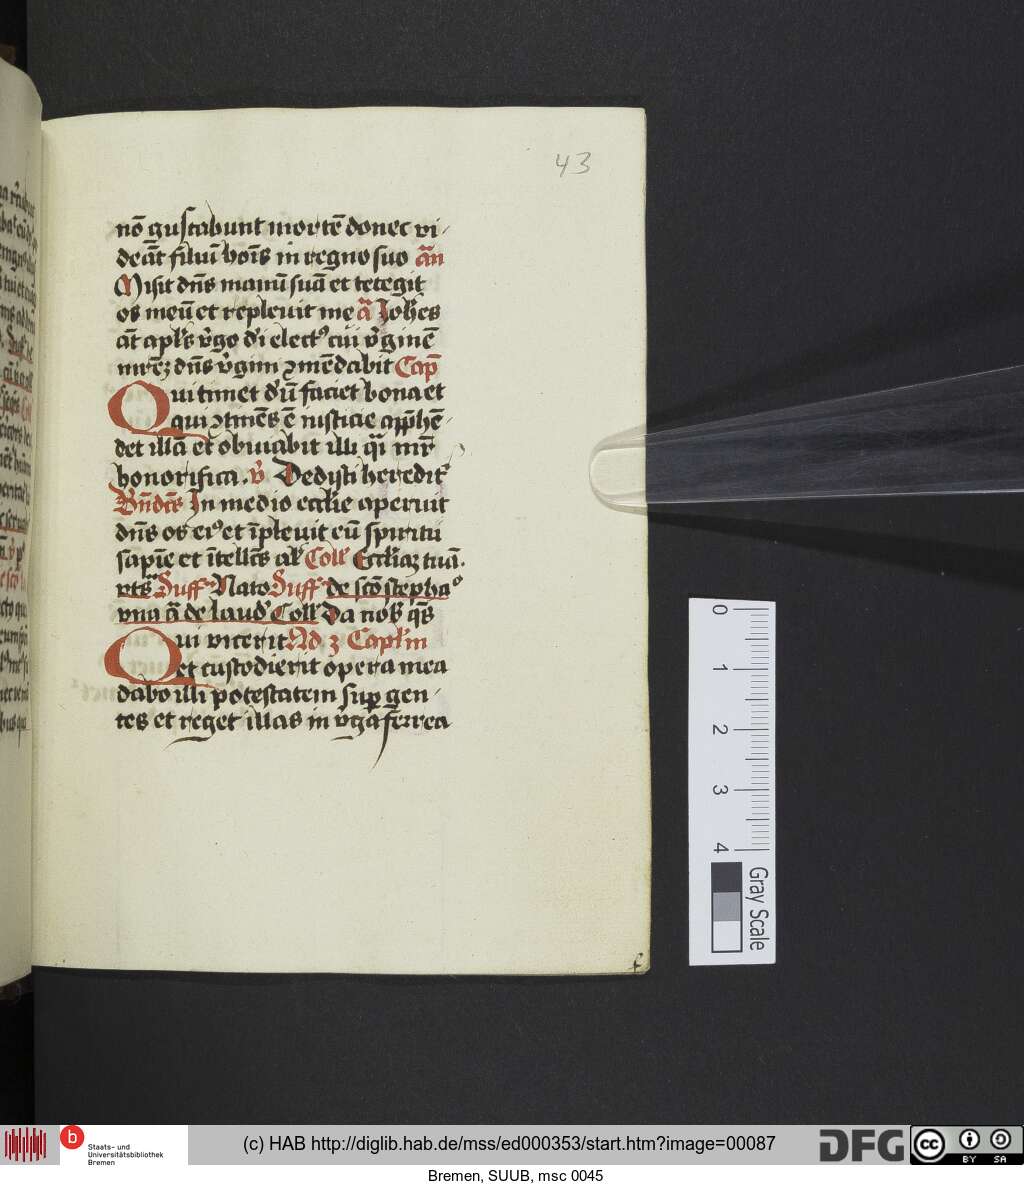 43
nō gustabunt mortē donec vi-
deāt filiū hoīs in regno suo an̄
Misit dn̄s manū suā et tetegit
os meū et repleuit me a᷒ Joh̄es
āt apl̄s v̓go d̓i elect᷒ cui v̓ginē
mr̄ēꝫ dn̄s v̓gini ꝯmēdabit Cap̄
Qui timet d̓ū faciet bona et
qui ꝯtinēs ē iusticie app̄hē-
det illā et obuiabit illi q̄i mr̄
honorifica. v̓ Dedisti heredit᷒
Bn̄dc̄s In medio eccl̄ie aperuit
dn̄s os ei᷒ et īpleuit eū spiritu
sapīe et ītellc̄s al̄ Coll̄ Eccl̄iaꝫ tuā.
vts̄ Suff᷒ Nato Suff᷒ de scō stepha°
vna ā de laud᷒ Coll̄ Da nob̄ q̄s
Qui vicerit Ad. 3 Capl̄m
et custodierit opera mea
dabo illi potestatem sup̄ gen-
tes et reget illas in v̓ga ferrea
f
0 1 2 3 4
Gray Scale
b Staats- und
Universitätsbibliothek
Bremen
(c) HAB http://diglib.hab.de/mss/ed000353/start.htm?image=00087
DFG
cc BY SA
Bremen, SUUB, msc 0045